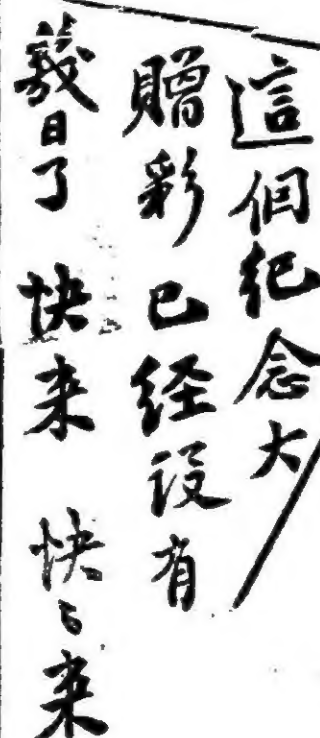 這個紀念大
贈彩已经没有
幾日了 快来 快々来